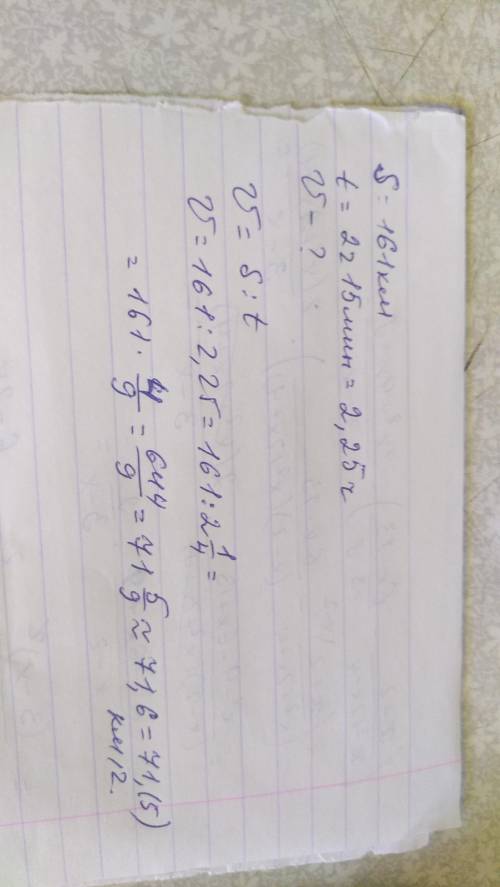 S - 161 км
t = 2ч 15 мин = 2,25 ч
V - ?
V = S : t
V = 161 : 2,25 = 161 : 2 1/4 =
= 161 · 4/9 = 644/9 = 71 5/9 ≈ 71,6 = 71,(5)
км/ч.